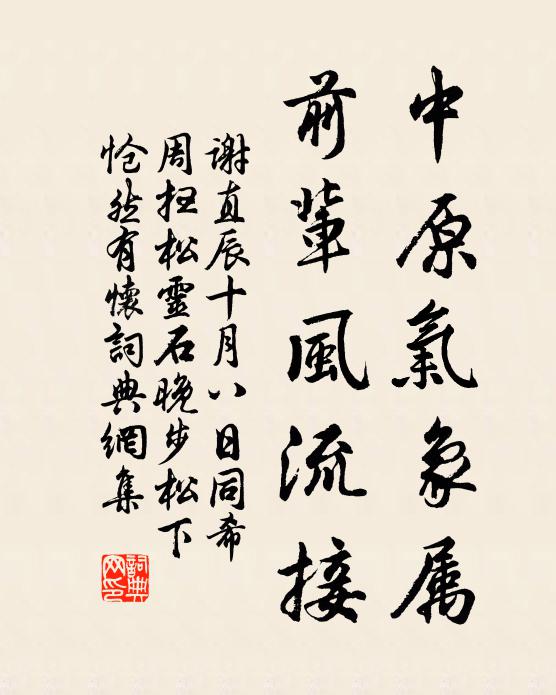 中原氣象属
前輩風流接
謝直辰十月八日同希
周扫松靈石晚步松下
怆然有懷詞典網集
詞典网印